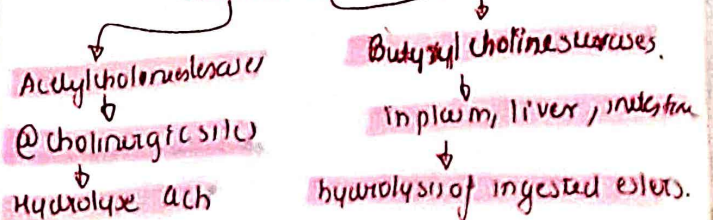 Acetylcholinesterases
@ cholinergic sites
Hydrolyse Ach
Butyryl cholinesterases.
in plasm, liver, intestine
hydrolysis of ingested esters.